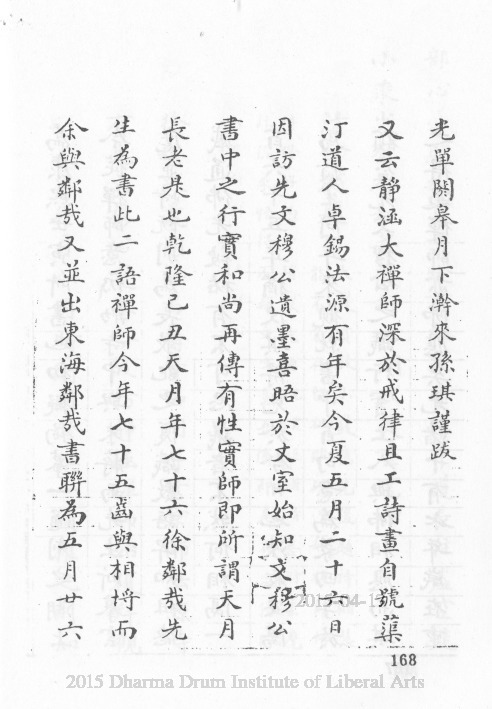 光單閼皋月下澣來孫琪謹跋
又云靜涵大禪師深於戒律且工詩畫自號藥
汀道人卓錫法源有年矣今夏五月二十六日
因訪先文穆公遺墨喜晤於丈室始知文穆公
書中之行實和尚再傳有性實師即所謂天月
長老是也乾隆己丑天月年七十六徐鄰哉先
生為書此二語禪師今年七十五齒與相埒而
余與鄰哉又並出東海鄰哉書聯為五月廿六
168
2015 Dharma Drum Institute of Liberal Arts